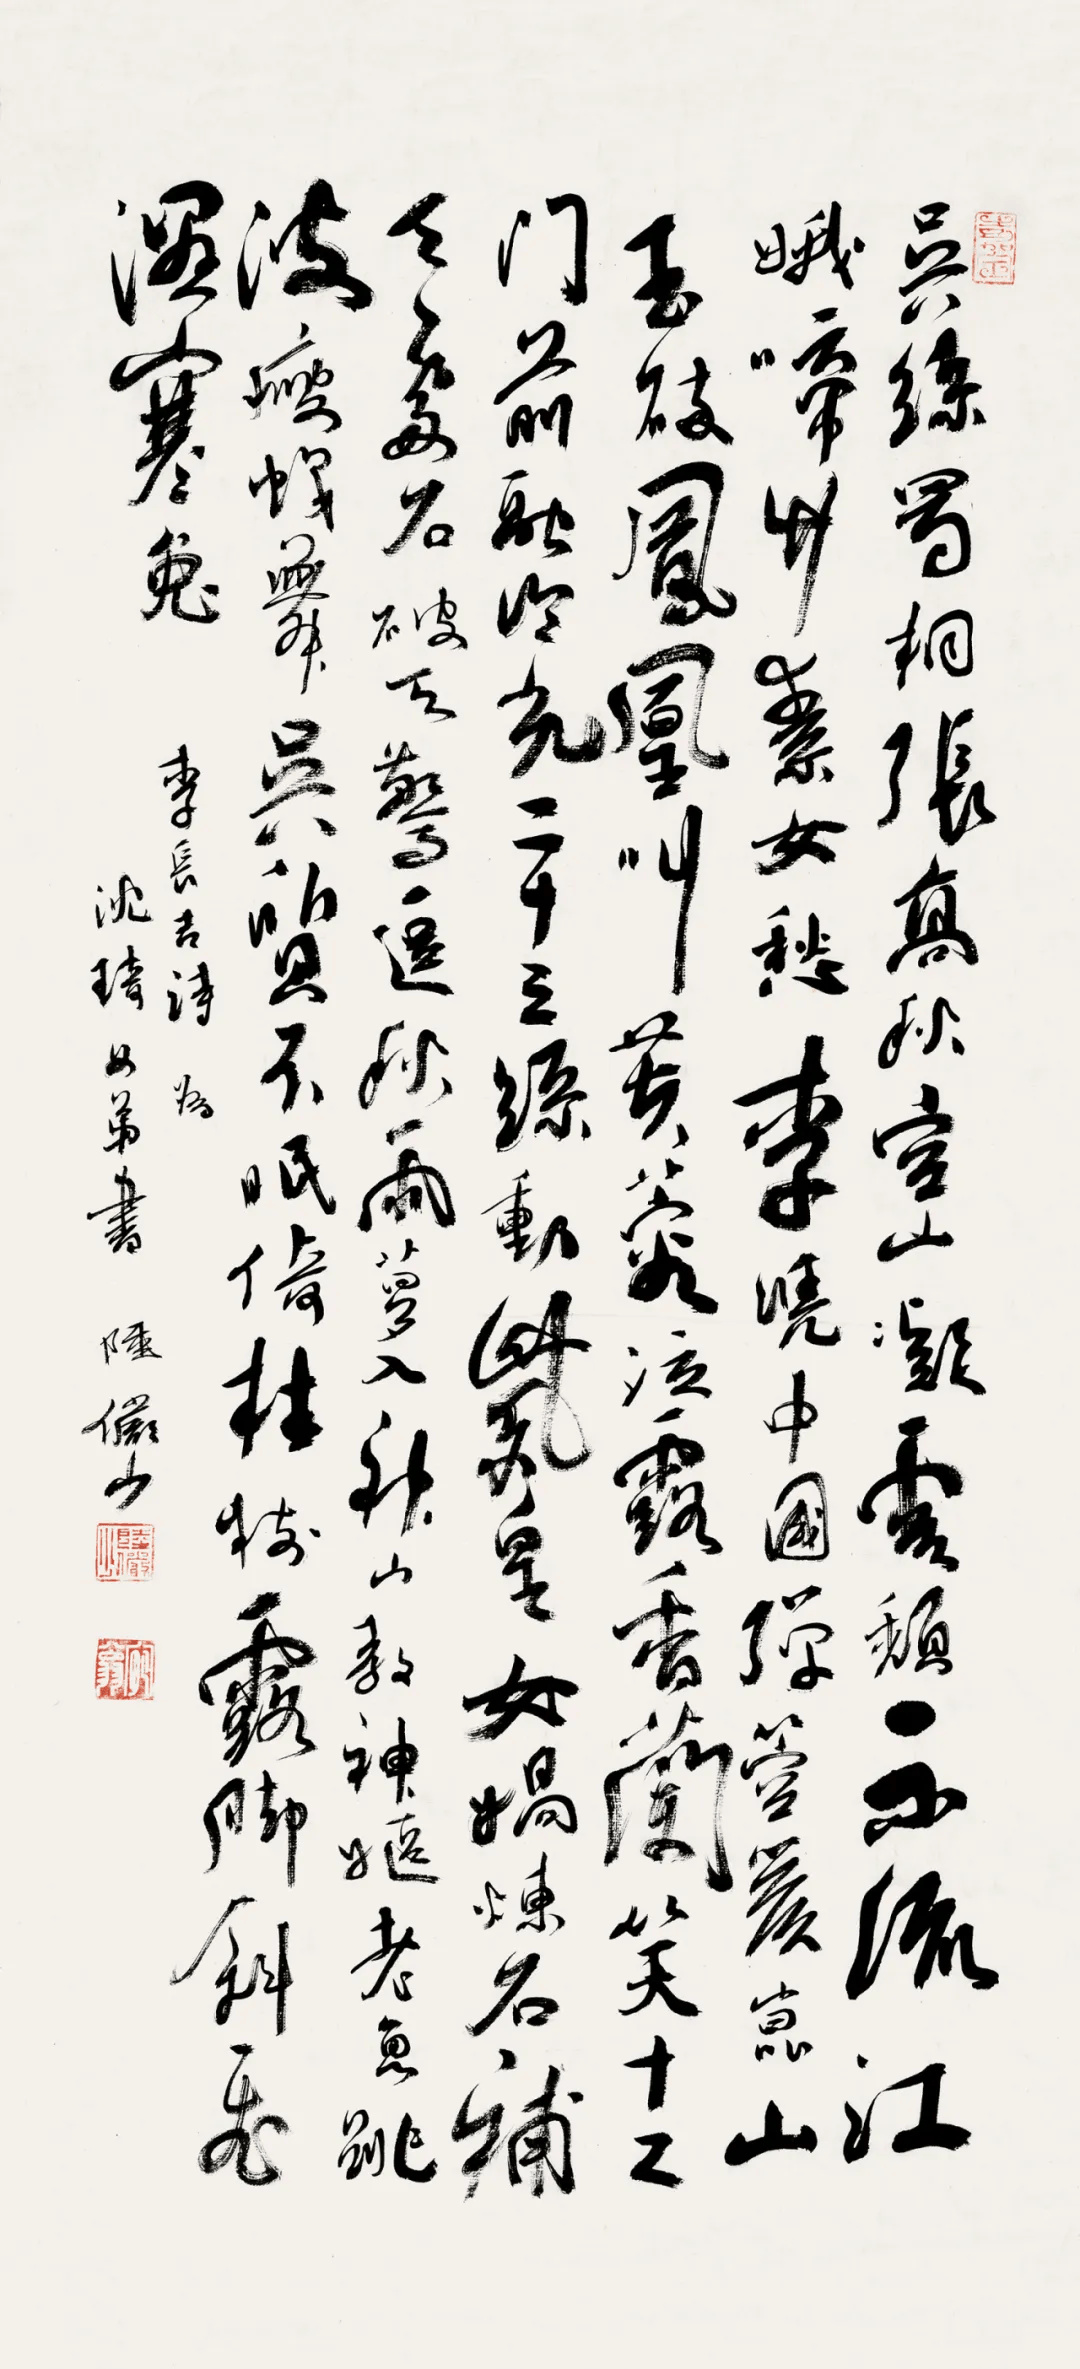 吳絲蜀桐張高秋空山凝雲頹不流江
娥啼竹素女愁李凴中國彈箜篌崑山
玉碎鳳凰叫芙蓉泣露香蘭笑十二
门前融冷光二十三絲動紫皇女媧煉石補
天處石破天驚逗秋雨夢入神山教神嫗老魚跳
波瘦蛟舞吳質不眠倚桂樹露脚斜飛
濕寒兔
李長吉詩 為
沈琦女弟書 陸儼少
陸儼少